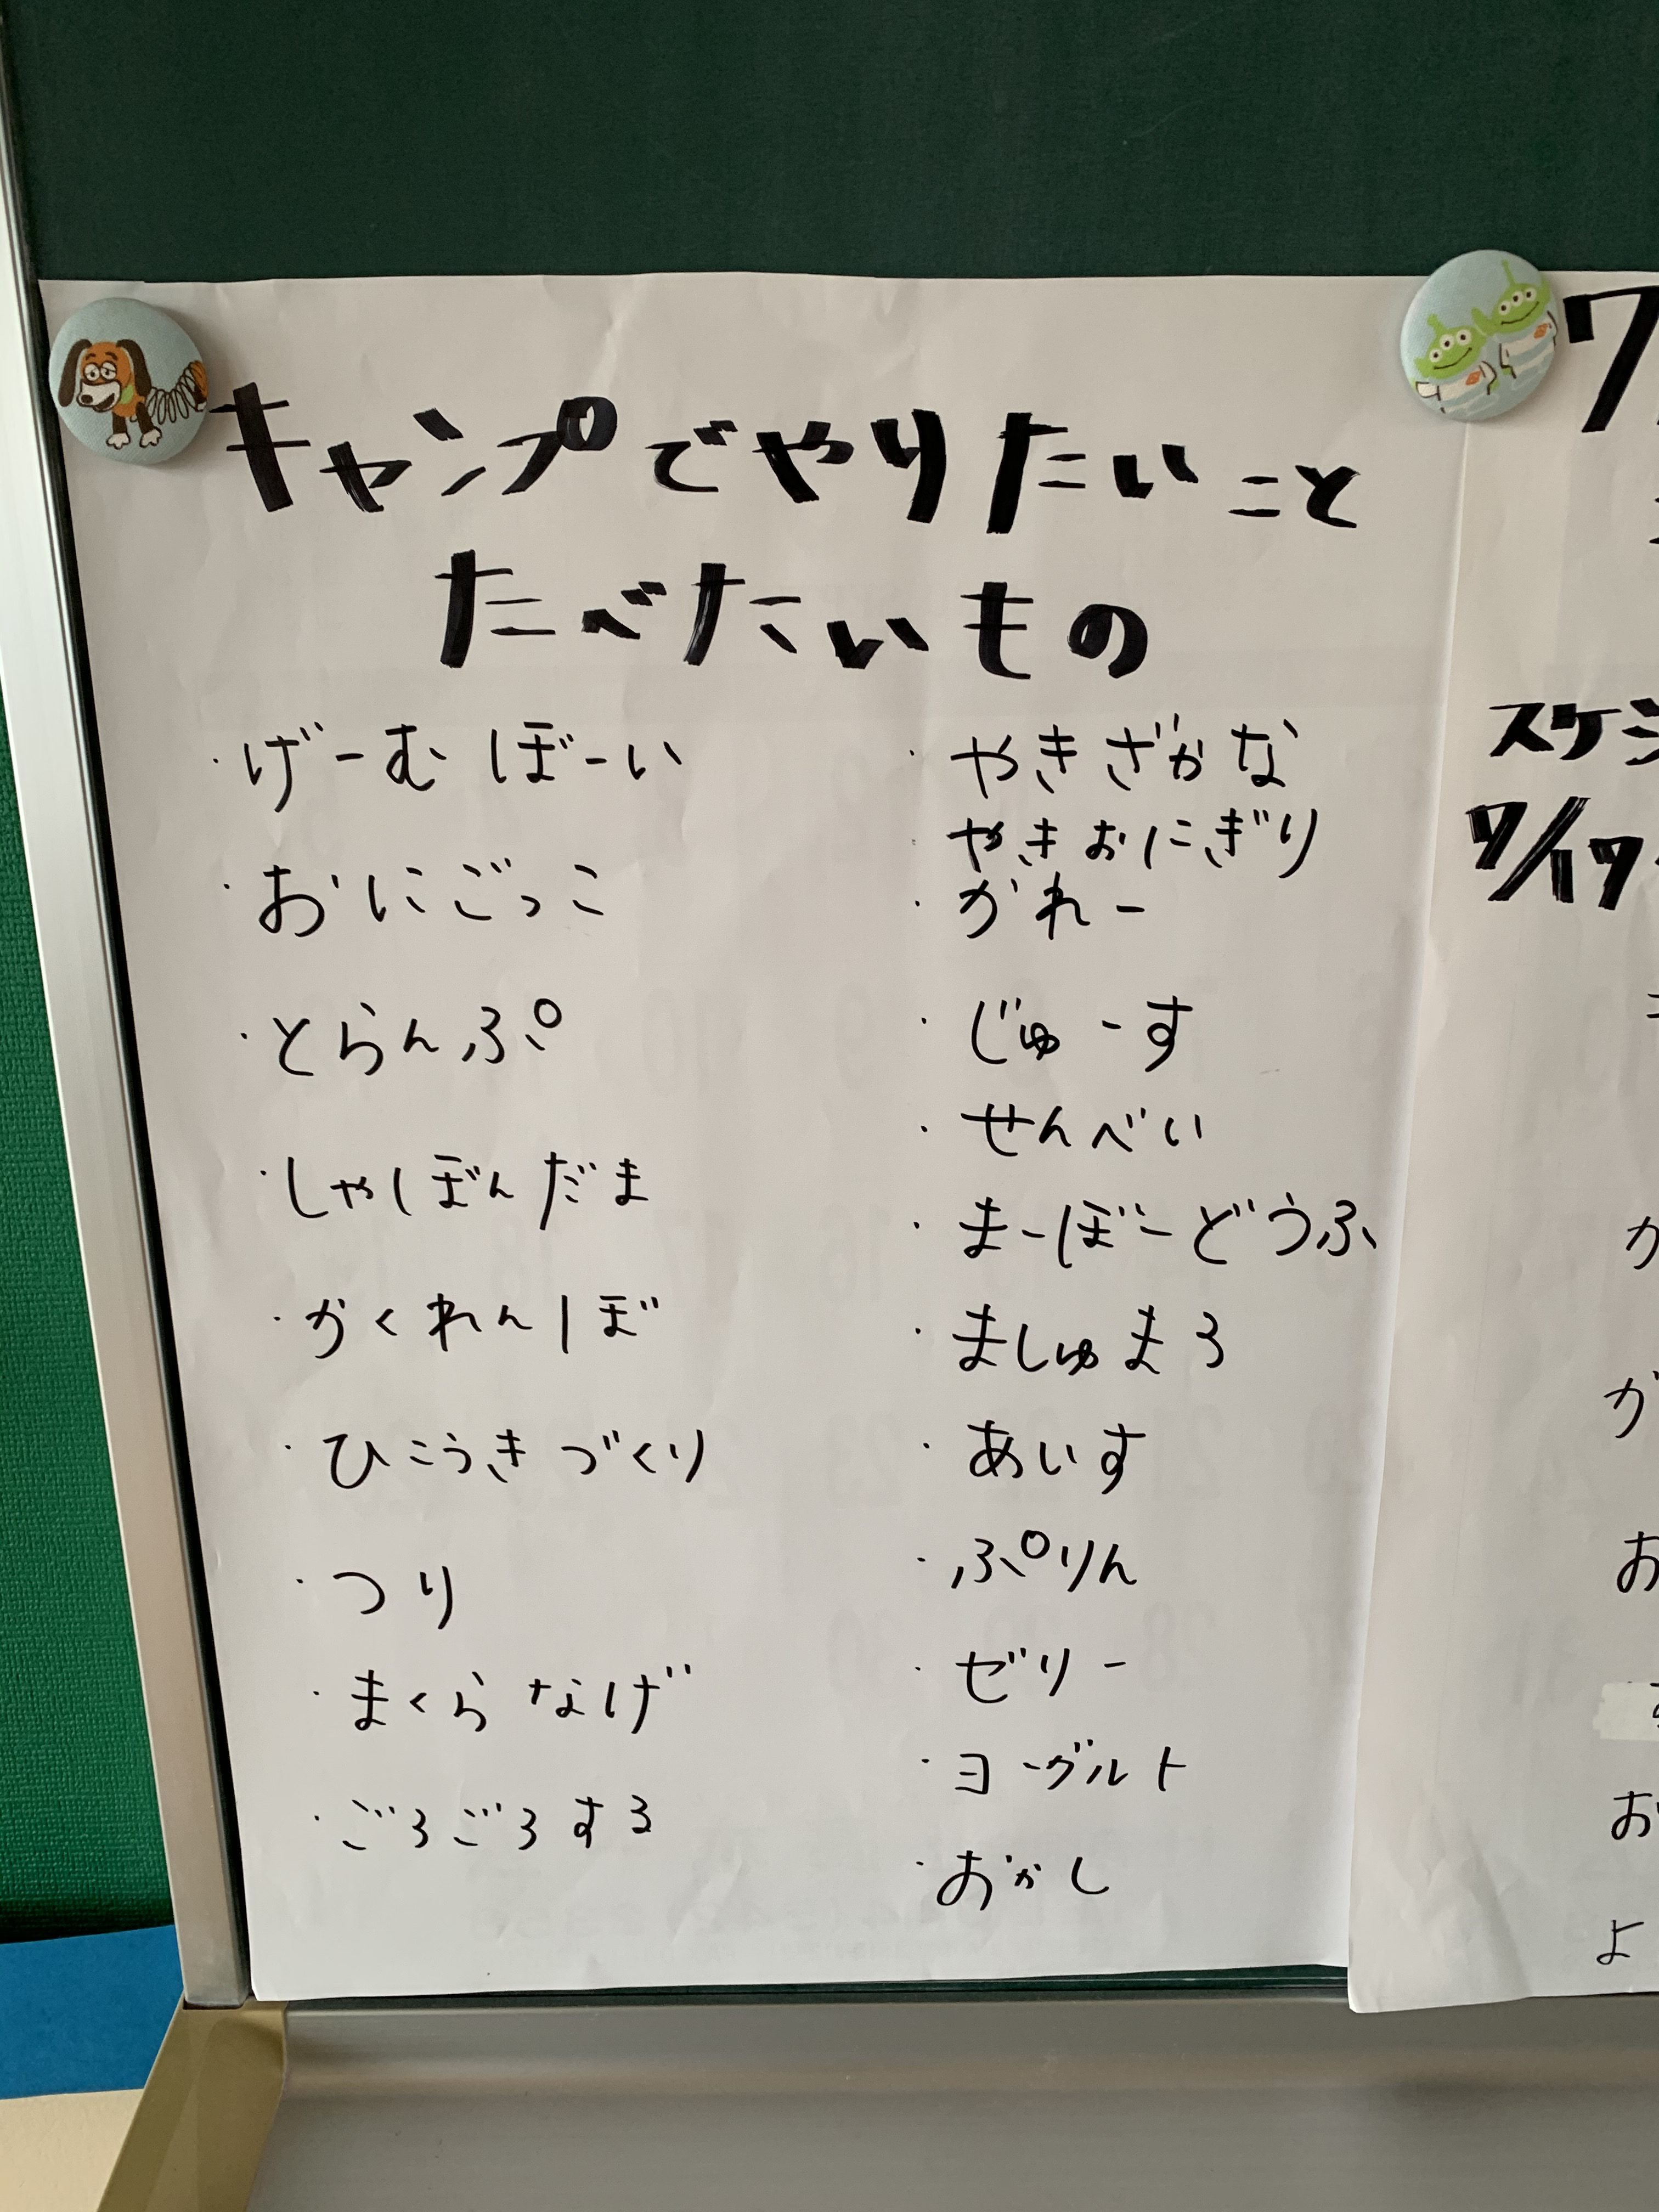 キャンプでやりたいこと
たべたいもの
・げーむぼーい
・おにごっこ
・とらんぷ
・しゃぼんだま
・かくれんぼ
・ひこうきづくり
・つり
・まくらなげ
・ごろごろする
・やきざかな
・やきおにぎり
・かれー
・じゅーす
・せんべい
・まーぼーどうふ
・ましゅまろ
・あいす
・ぷりん
・ゼリー
・ヨーグルト
・おかし
7/
スケジ
7/17
か
が
お
お
よ